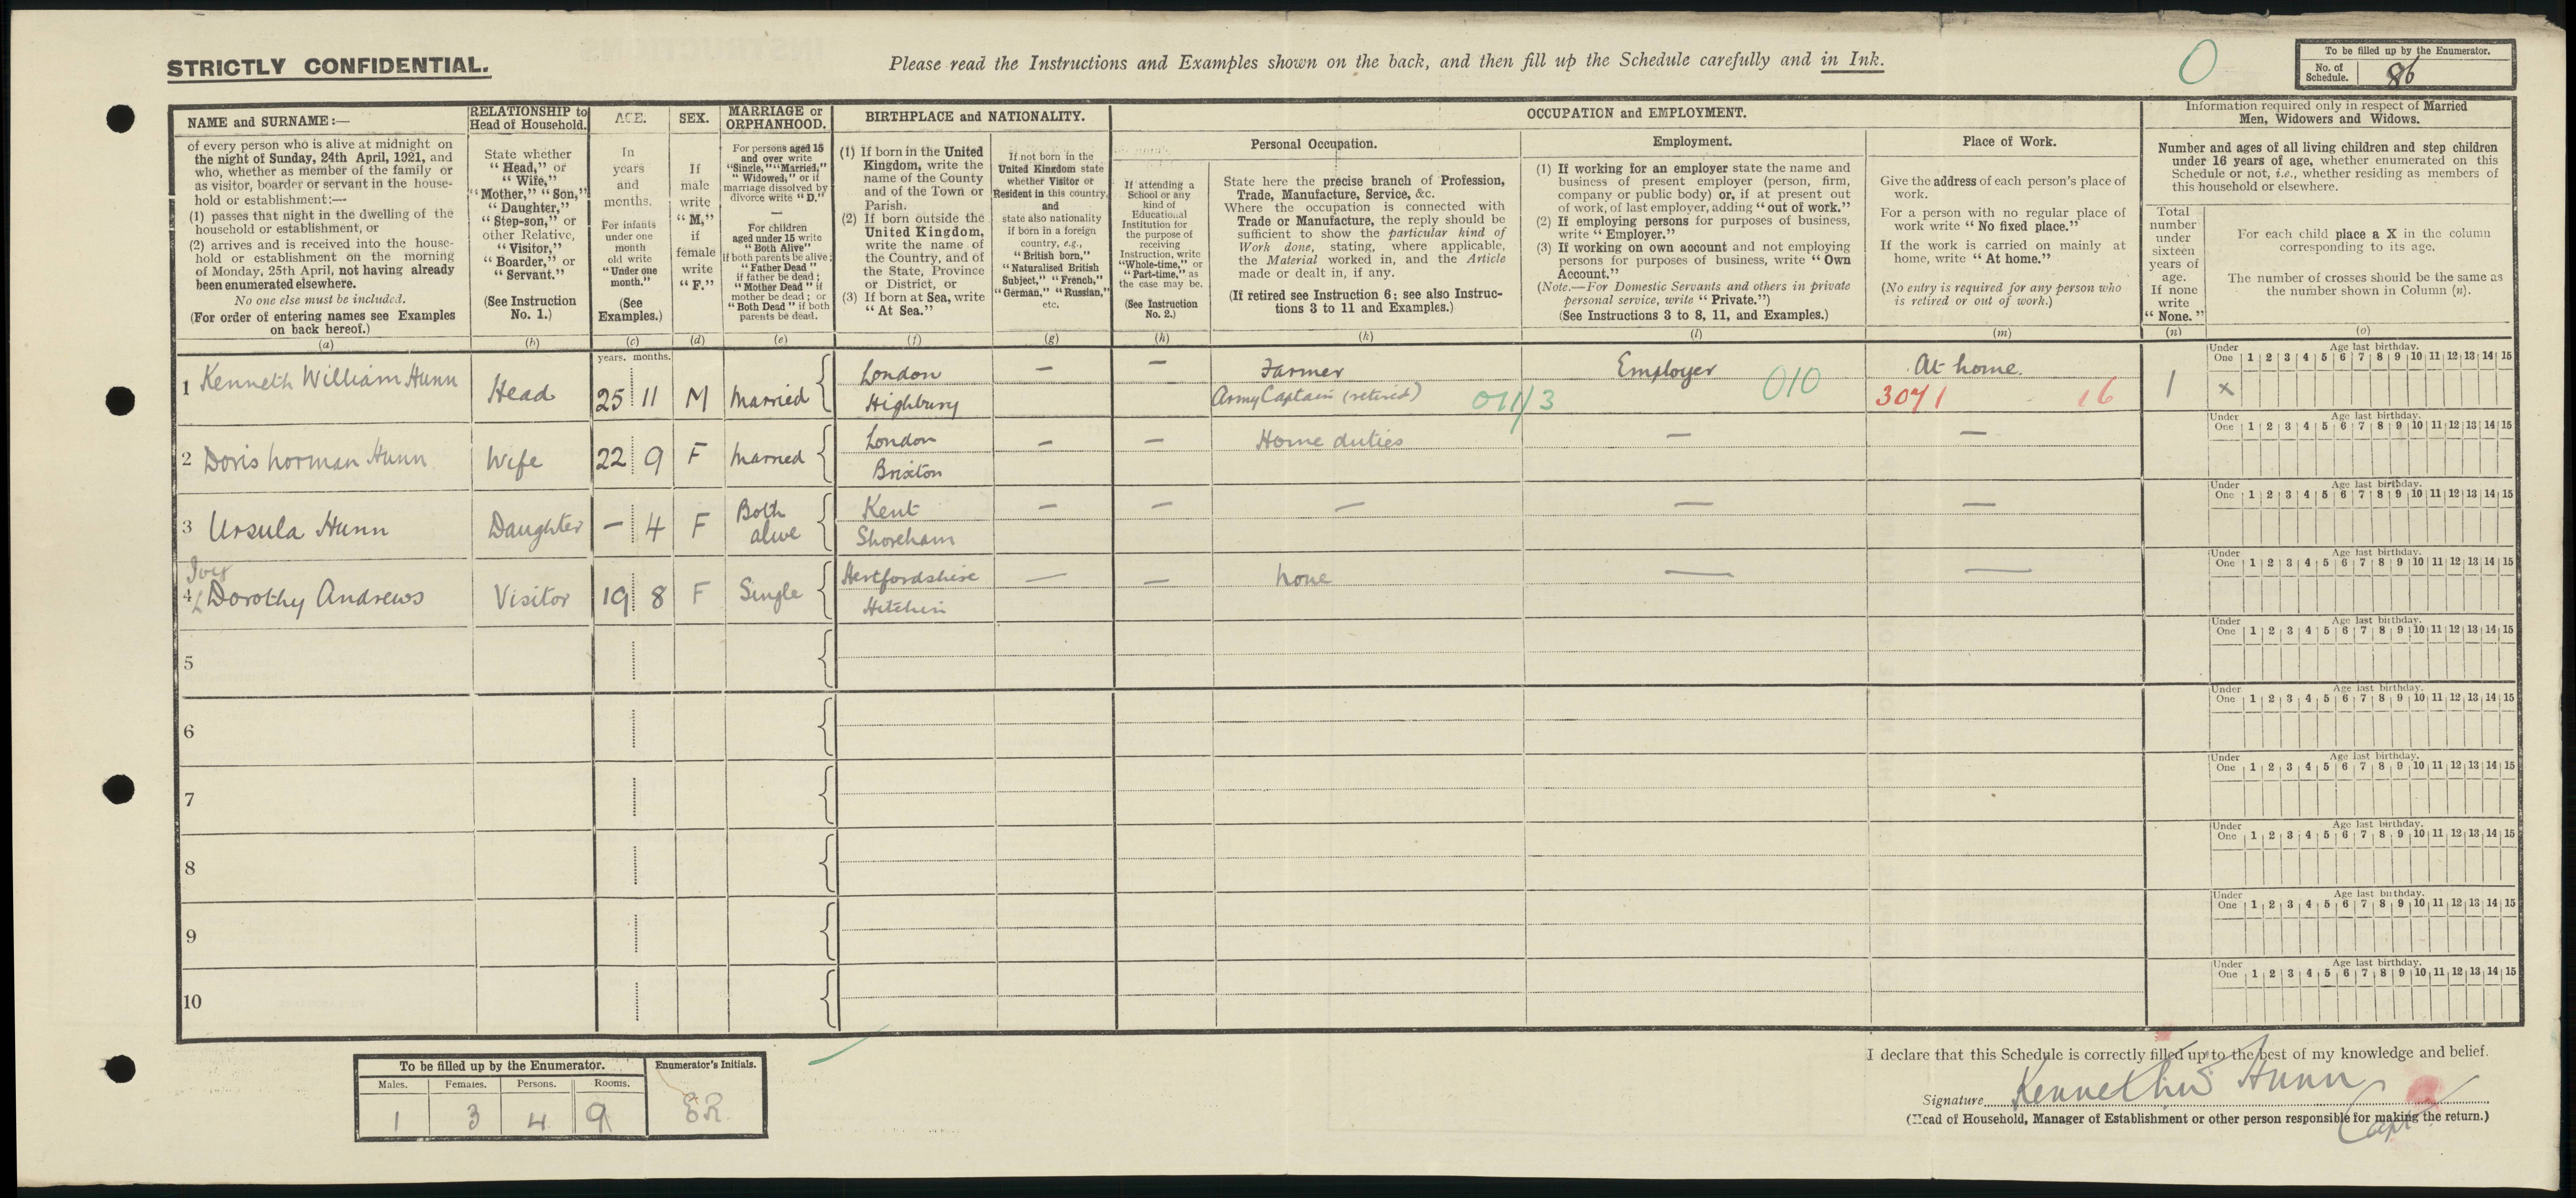 STRICTLY CONFIDENTIAL.
Please read the Instructions and Examples shown on the back, and then fill up the Schedule carefully and in Ink.
0
To be filled up by the Enumerator.
No. of Schedule. 86
NAME and SURNAME:—
of every person who is alive at midnight on
the night of Sunday, 24th April, 1921, and
who, whether as member of the family or
as visitor, boarder or servant in the house-
hold or establishment:—
(1) passes that night in the dwelling of the
household or establishment, or
(2) arrives and is received into the house-
hold or establishment on the morning
of Monday, 25th April, not having already
been enumerated elsewhere.
No one else must be included.
(For order of entering names see Examples
on back hereof.)
(a)
RELATIONSHIP to
Head of Household.
State whether
"Head," or
"Wife,"
"Mother," "Son,"
"Daughter,"
"Step-son," or
other Relative,
"Visitor,"
"Boarder," or
"Servant."
(See Instruction
No. 1.)
(b)
AGE.
In
years
and
months.
For infants
under one
month
old write
"Under one
month."
(See
Examples.)
(c)
SEX.
If
male
write
"M,"
if
female
write
"F."
(d)
MARRIAGE or
ORPHANHOOD.
For persons aged 15
and over write
"Single," "Married,"
"Widowed," or if
marriage dissolved by
divorce write "D."
—
For children
aged under 15 write
"Both Alive"
if both parents be alive;
"Father Dead"
if father be dead;
"Mother Dead" if
mother be dead; or
"Both Dead" if both
parents be dead.
(e)
BIRTHPLACE and NATIONALITY.
(1) If born in the United
Kingdom, write the
name of the County
and of the Town or
Parish.
(2) If born outside the
United Kingdom,
write the name of
the Country, and of
the State, Province
or District, or
(3) If born at Sea, write
"At Sea."
(f)
If not born in the
United Kingdom state
whether Visitor or
Resident in this country,
and
state also nationality
if born in a foreign
country, e.g.,
"British born,"
"Naturalised British
Subject," "French,"
"German," "Russian,"
etc.
(g)
OCCUPATION and EMPLOYMENT.
Personal Occupation.
If attending a
School or any
kind of
Educational
Institution for
the purpose of
receiving
Instruction, write
"Whole-time," or
"Part-time," as
the case may be.
(See Instruction
No. 2.)
(h)
State here the precise branch of Profession,
Trade, Manufacture, Service, &c.
Where the occupation is connected with
Trade or Manufacture, the reply should be
sufficient to show the particular kind of
Work done, stating, where applicable,
the Material worked in, and the Article
made or dealt in, if any.
(If retired see Instruction 6; see also Instruc-
tions 3 to 11 and Examples.)
(k)
Employment.
(1) If working for an employer state the name and
business of present employer (person, firm,
company or public body) or, if at present out
of work, of last employer, adding "out of work."
(2) If employing persons for purposes of business,
write "Employer."
(3) If working on own account and not employing
persons for purposes of business, write "Own
Account."
(Note.—For Domestic Servants and others in private
personal service, write "Private.")
(See Instructions 3 to 8, 11, and Examples.)
(l)
Place of Work.
Give the address of each person's place of
work.
For a person with no regular place of
work write "No fixed place."
If the work is carried on mainly at
home, write "At home."
(No entry is required for any person who
is retired or out of work.)
(m)
Information required only in respect of Married
Men, Widowers and Widows.
Number and ages of all living children and step children
under 16 years of age, whether enumerated on this
Schedule or not, i.e., whether residing as members of
this household or elsewhere.
Total
number
under
sixteen
years of
age.
If none
write
"None."
(n)
For each child place a X in the column
corresponding to its age.
The number of crosses should be the same as
the number shown in Column (n).
(o)
years. months.
Under One Age last birthday. 1 2 3 4 5 6 7 8 9 10 11 12 13 14 15
1 Kenneth William Hunn Head 25 11 M Married London Highbury — — Farmer Army Captain (retired) 011/3 Employer 010 At home. 3071 16 1 x
Under One Age last birthday. 1 2 3 4 5 6 7 8 9 10 11 12 13 14 15
2 Doris Norman Hunn Wife 22 9 F Married London Brixton — — Home duties — —
Under One Age last birthday. 1 2 3 4 5 6 7 8 9 10 11 12 13 14 15
3 Ursula Hunn Daughter — 4 F Both alive Kent Shoreham — — — — —
Under One Age last birthday. 1 2 3 4 5 6 7 8 9 10 11 12 13 14 15
Ivy
4 Dorothy Andrews Visitor 19 8 F Single Hertfordshire Hitchin — — None — —
Under One Age last birthday. 1 2 3 4 5 6 7 8 9 10 11 12 13 14 15
5
Under One Age last birthday. 1 2 3 4 5 6 7 8 9 10 11 12 13 14 15
6
Under One Age last birthday. 1 2 3 4 5 6 7 8 9 10 11 12 13 14 15
7
Under One Age last birthday. 1 2 3 4 5 6 7 8 9 10 11 12 13 14 15
8
Under One Age last birthday. 1 2 3 4 5 6 7 8 9 10 11 12 13 14 15
9
Under One Age last birthday. 1 2 3 4 5 6 7 8 9 10 11 12 13 14 15
10
To be filled up by the Enumerator. Enumerator's Initials.
Males. Females. Persons. Rooms.
1 3 4 9 ER.
I declare that this Schedule is correctly filled up to the best of my knowledge and belief.
Signature Kenneth W Hunn
(Head of Household, Manager of Establishment or other person responsible for making the return.)
Capt